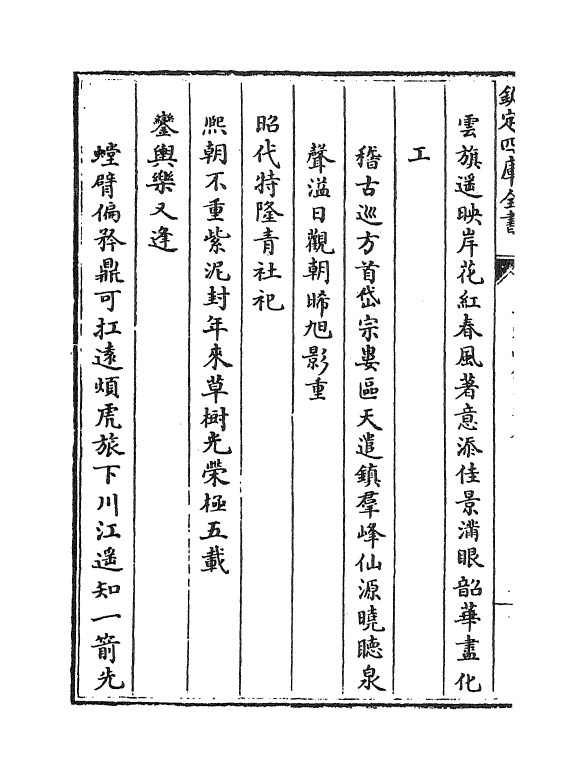 欽定四庫全書
雲旗遥映岸花紅春風著意添佳景滿眼韶華盡化
工
稽古巡方首岱宗婁區天遣鎮羣峰仙源曉聽泉
聲溢日觀朝晞旭影重
昭代特隆青社祀
熙朝不重紫泥封年來草樹光榮極五載
鑾輿樂又逢
螳臂偏矜鼎可扛遠煩虎旅下川江遥知一箭先